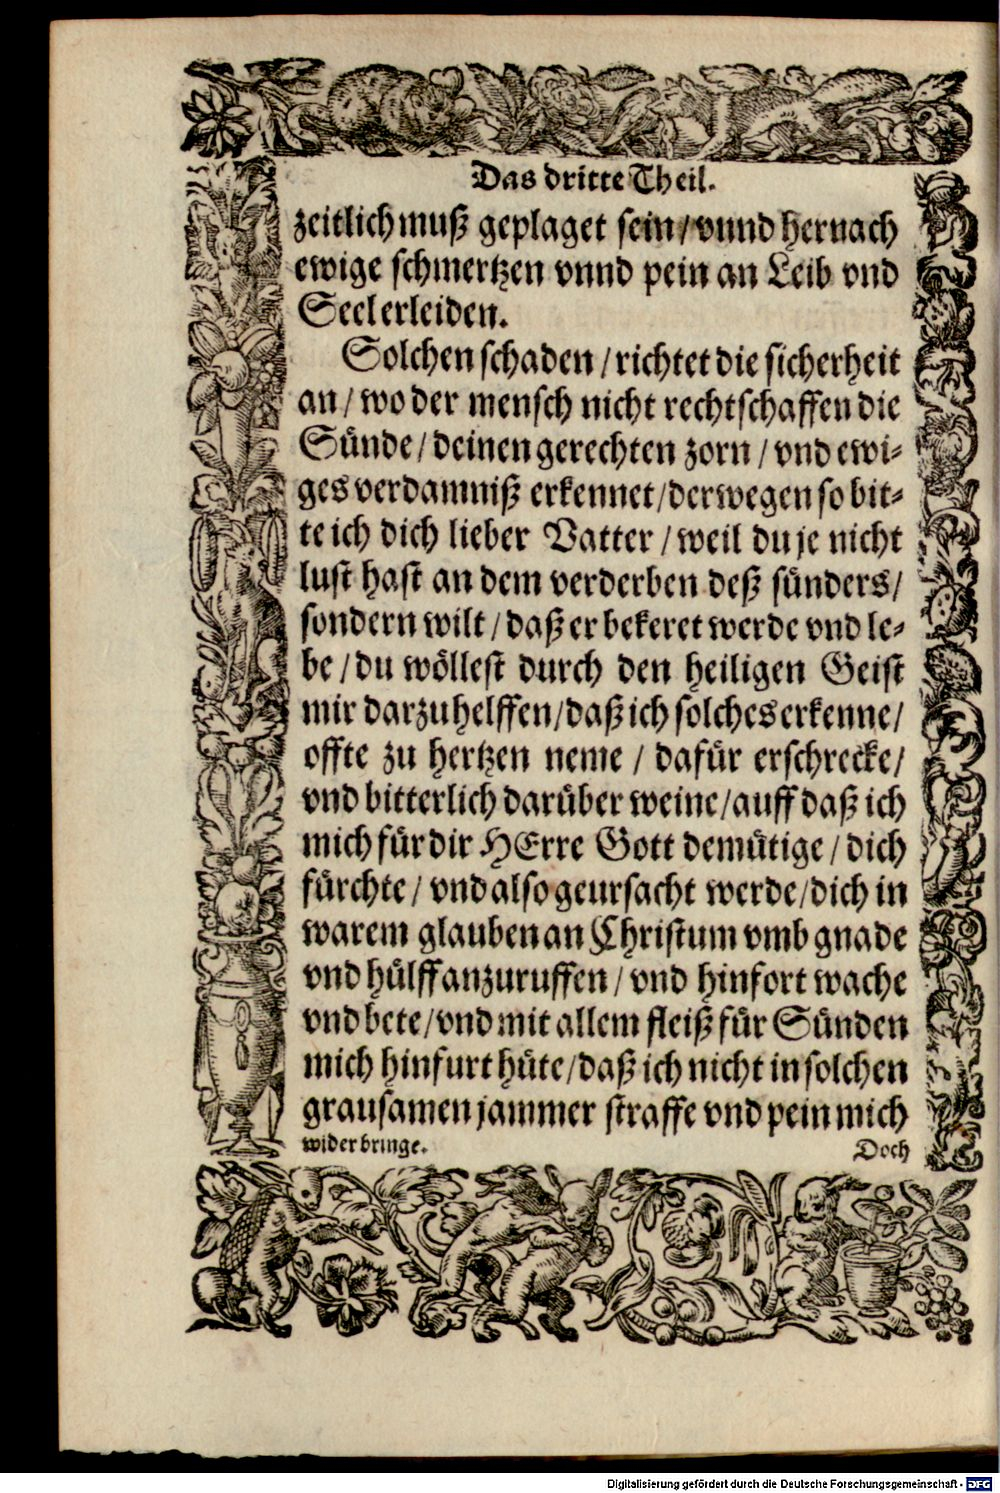 Das dritte Theil.
zeitlich muß geplaget sein / vnnd hernach
ewige schmertzen vnnd pein an Leib vnd
Seel erleiden.
Solchen schaden / richtet die sicherheit
an / wo der mensch nicht rechtschaffen die
Sünde / deinen gerechten zorn / vnd ewi-
ges verdamniß erkennet / derwegen so bit-
te ich dich lieber Vatter / weil du je nicht
lust hast an dem verderben deß sünders /
sondern wilt / daß er bekeret werde vnd le-
be / du wöllest durch den heiligen Geist
mir darzu helffen / daß ich solches erkenne /
offte zu hertzen neme / dafür erschrecke /
vnd bitterlich darüber weine / auff daß ich
mich für dir HErre Gott demütige / dich
fürchte / vnd also geursacht werde / dich in
warem glauben an Christum vmb gnade
vnd hülff anzuruffen / vnd hinfort wache
vnd bete / vnd mit allem fleiß für Sünden
mich hinfurt hüte / daß ich nicht in solchen
grausamen jammer straffe vnd pein mich
wider bringe.
Doch
Digitalisierung gefördert durch die Deutsche Forschungsgemeinschaft - DFG